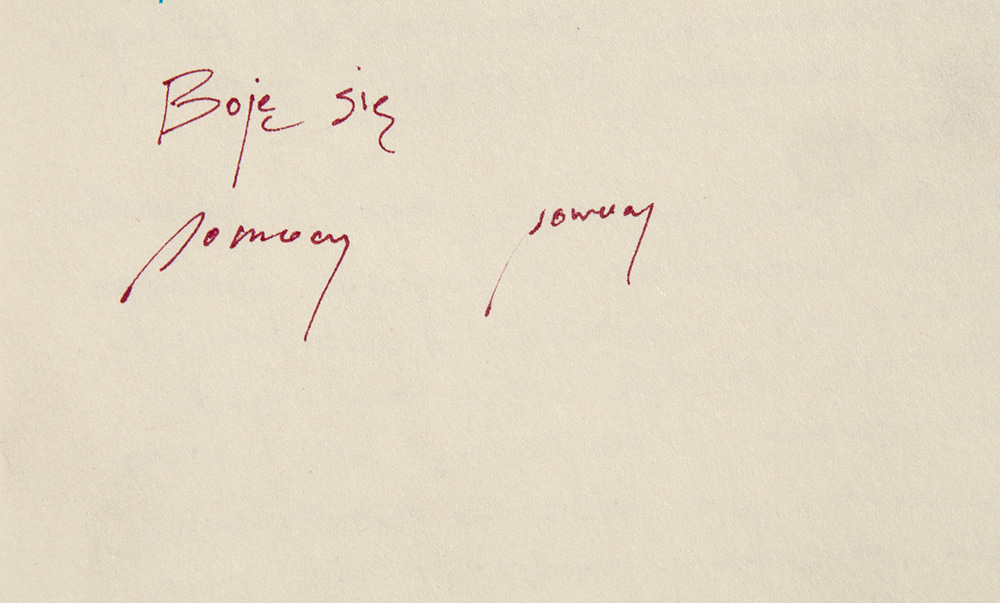 Boję się
pomocy pomocy